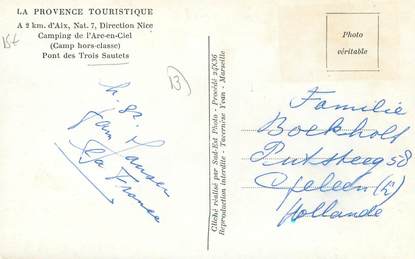 LA PROVENCE TOURISTIQUE
A 2 km. d'Aix, Nat. 7, Direction Nice
Camping de l'Arc-en-Ciel
(Camp hors-classe)
Pont des Trois Sautets
15€
13
Jan Jansen
La France
Cliché réalisé par Sud-Est Photo - Procédé 24X36
Reproduction interdite - Tavernier Yvon - Marseille
Photo
véritable
Familie
Boekholt
Putsteeg 58
Geleen (L)
Hollande